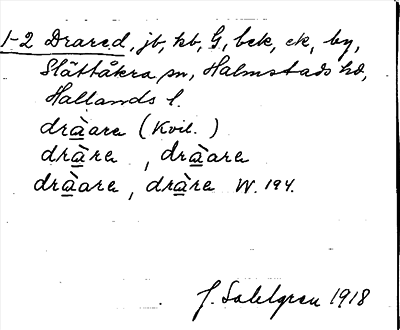 1-2 Drared, jb, kb, G, bek, ek, by,
Slättåkra sn, Halmstads hd,
Hallands l.
dràare (Kvil. )
dràre , dràare
dràare, dràre W. 194.
J. Sahlgren 1918